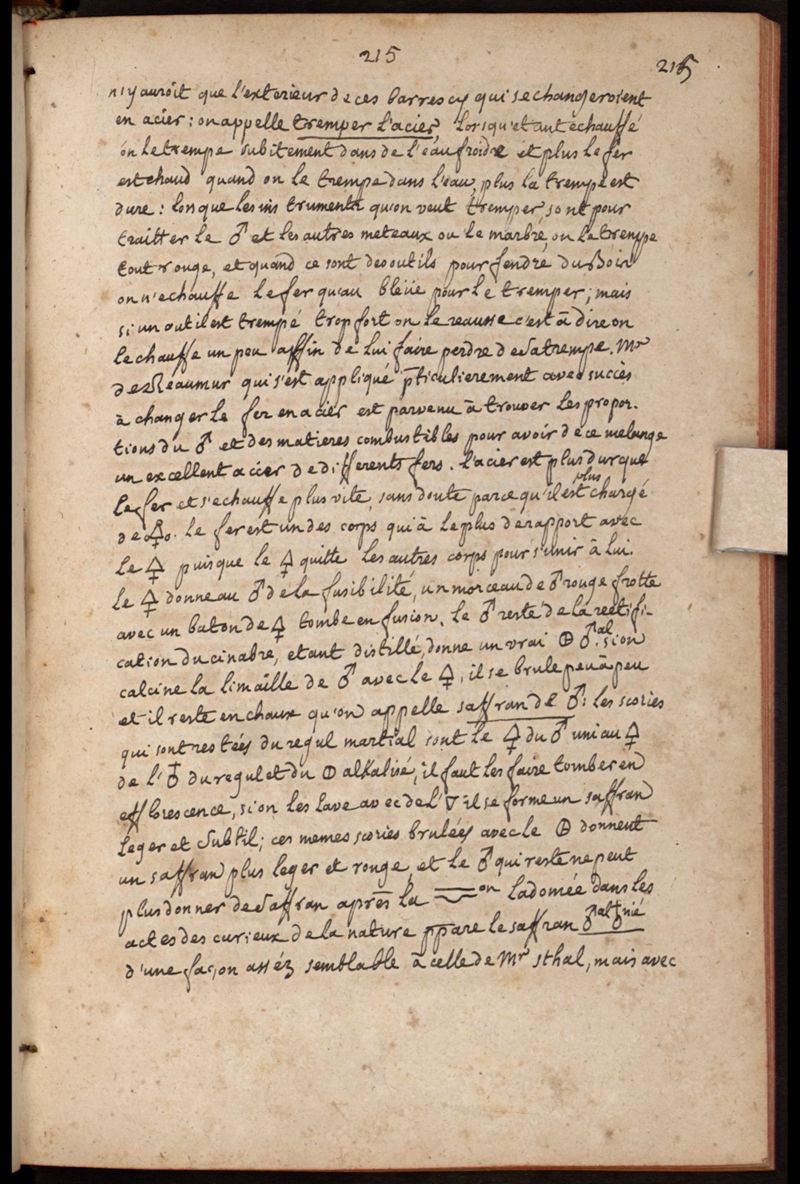 215
215
n'y auroit que l'exterieur de ces barres cy qui se changeroient
en acier: on appelle tremper l'acier, lorsqu'etant échauffé
on le trempe subitement dans de l'eau froide et plus le fer
est chaud quand on le trempe dans l'eau, plus la trempe est
dure: lorsque les instruments qu'on veut tremper, sont pour
traitter le ♂ et les autres meteaux ou le marbre, on le trempe
tout rouge, et quand ce sont des outils pour fendre du Bois
on n'echauffe le fer qu'au bleüe pour le tremper; mais
si un outil est trempé trop fort on le reausse c'est à dire on
le chauffe un peu affin de lui faire perdre de sa trempe. Mr
de Reaumur qui s'est appliqué pticulierement avec succès
à changer le fer en acier est parvenu à trouver les propor-
tions du ♂ et des matieres combustibles pour avoir de ce melange
un excellent acier de differents fers. l'acier est plus dur que
le fer et s'echauffe plus vite, sans doute parce qu'il est plus chargé
de 🜍. le fer est un des corps qui à le plus de rapport avec
le 🜍 puisque le 🜍 quitte les autres corps pour s'unir à lui.
le 🜍 donne au ♂ de la fusibilité, un morceau de ♂ rouge frotté
avec un baton de 🜍 tombe en fusion. le ♂ reste de la rectifi-
cation du cinabre, etant distillé, donne un vrai 🜕 ♂al. si on
calcine la limaille de ♂ avec le 🜍, il se brule peu à peu
et il reste en chaux qu'on appelle saffran de ♂: les scories
qui sont restées du regul martial sont le 🜍 du ♂ uni au 🜍
de l'♁ du regul et du 🜕 alkalisé, il faut les faire tomber en
efflorescence, si on les lave avec de l'🜄 il se forme un saffran
leger et subtil; ces memes scories brulées avec le 🜕 donnent
un saffran plus leger et rouge, et le ♂ qui reste ne peut
plus donner de saffran après la on ladomée dans les
actes des curieux de la nature ppare le saffran ♂al ♁nié
d'une façon assés semblable à celle de Mr sthal, mais avec